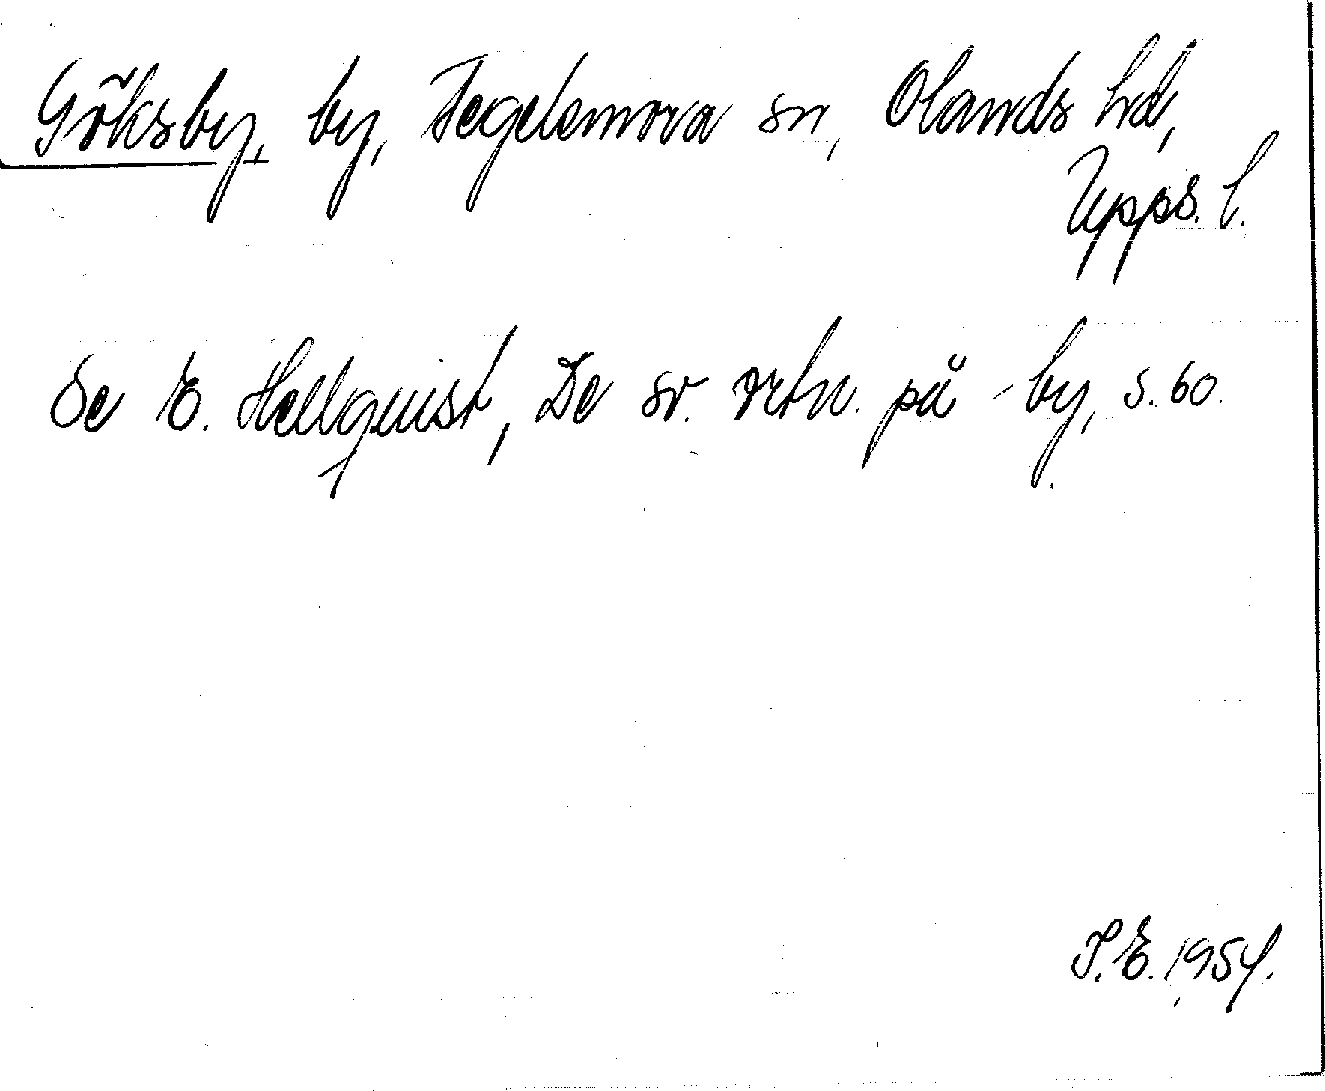 Göksby, by, Tegelsmora sn, Olands hd,
Upps. l.
Se E. Hellquist, De sv. ortn. på -by, s. 60.
I.E. 1954.